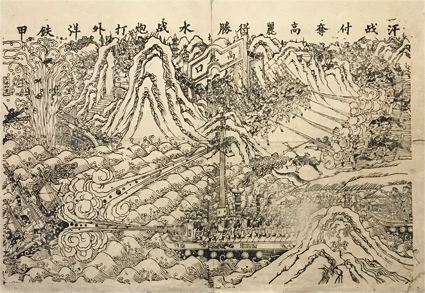 汗战付奪高麗得勝 水战炮打外洋鉄甲